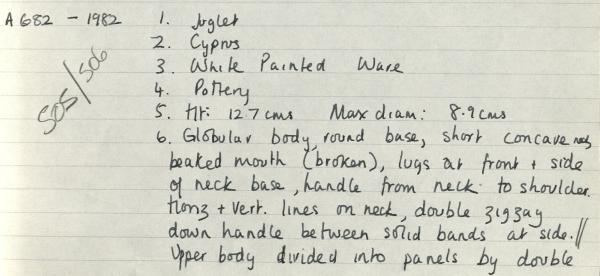 A 682 - 1982 1. Juglet
2. Cyprus
3. White Painted Ware
4. Pottery
505/506
5. Ht: 12.7 cms Max diam: 8.9 cms
6. Globular body, round base, short concave neck,
beaked mouth (broken), lugs at front + side
of neck base, handle from neck to shoulder.
Horiz + vert. lines on neck, double zigzag
down handle between solid bands at side.//
Upper body divided into panels by double